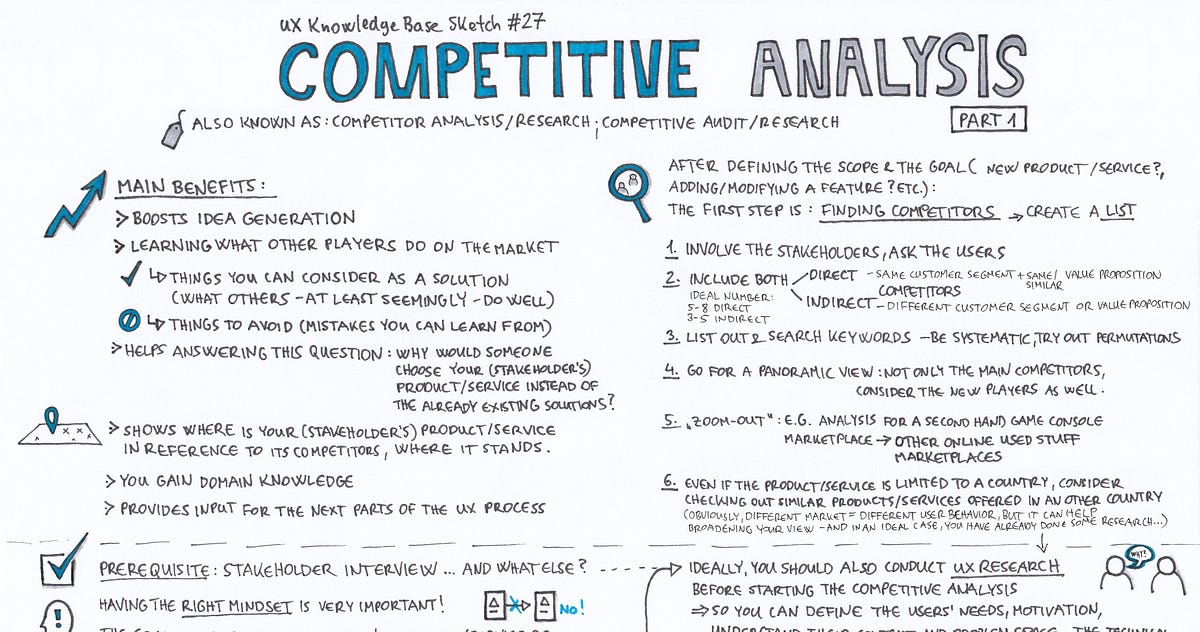 UX Knowledge Base Sketch #27
COMPETITIVE ANALYSIS
ALSO KNOWN AS: COMPETITOR ANALYSIS/RESEARCH; COMPETITIVE AUDIT/RESEARCH
PART 1
MAIN BENEFITS:
> BOOSTS IDEA GENERATION
> LEARNING WHAT OTHER PLAYERS DO ON THE MARKET
↳ THINGS YOU CAN CONSIDER AS A SOLUTION
(WHAT OTHERS - AT LEAST SEEMINGLY - DO WELL)
↳ THINGS TO AVOID (MISTAKES YOU CAN LEARN FROM)
> HELPS ANSWERING THIS QUESTION: WHY WOULD SOMEONE
CHOOSE YOUR (STAKEHOLDER'S)
PRODUCT/SERVICE INSTEAD OF
THE ALREADY EXISTING SOLUTIONS?
> SHOWS WHERE IS YOUR (STAKEHOLDER'S) PRODUCT/SERVICE
IN REFERENCE TO ITS COMPETITORS, WHERE IT STANDS.
> YOU GAIN DOMAIN KNOWLEDGE
> PROVIDES INPUT FOR THE NEXT PARTS OF THE UX PROCESS
AFTER DEFINING THE SCOPE & THE GOAL ( NEW PRODUCT/SERVICE?,
ADDING/MODIFYING A FEATURE? ETC.):
THE FIRST STEP IS: FINDING COMPETITORS → CREATE A LIST
1. INVOLVE THE STAKEHOLDERS, ASK THE USERS
2. INCLUDE BOTH DIRECT - SAME CUSTOMER SEGMENT + SAME/SIMILAR VALUE PROPOSITION
COMPETITORS
INDIRECT - DIFFERENT CUSTOMER SEGMENT OR VALUE PROPOSITION
IDEAL NUMBER:
5-8 DIRECT
3-5 INDIRECT
3. LIST OUT & SEARCH KEYWORDS - BE SYSTEMATIC, TRY OUT PERMUTATIONS
4. GO FOR A PANORAMIC VIEW: NOT ONLY THE MAIN COMPETITORS,
CONSIDER THE NEW PLAYERS AS WELL.
5. „ZOOM-OUT": E.G. ANALYSIS FOR A SECOND HAND GAME CONSOLE
MARKETPLACE → OTHER ONLINE USED STUFF
MARKETPLACES
6. EVEN IF THE PRODUCT/SERVICE IS LIMITED TO A COUNTRY, CONSIDER
CHECKING OUT SIMILAR PRODUCTS/SERVICES OFFERED IN AN OTHER COUNTRY
(OBVIOUSLY, DIFFERENT MARKET = DIFFERENT USER BEHAVIOR, BUT IT CAN HELP
BROADENING YOUR VIEW - AND IN AN IDEAL CASE, YOU HAVE ALREADY DONE SOME RESEARCH...)
PREREQUISITE: STAKEHOLDER INTERVIEW ... AND WHAT ELSE?
HAVING THE RIGHT MINDSET IS VERY IMPORTANT!
NO!
IDEALLY, YOU SHOULD ALSO CONDUCT UX RESEARCH
BEFORE STARTING THE COMPETITIVE ANALYSIS
⇒ SO YOU CAN DEFINE THE USERS' NEEDS, MOTIVATION,
WHY?